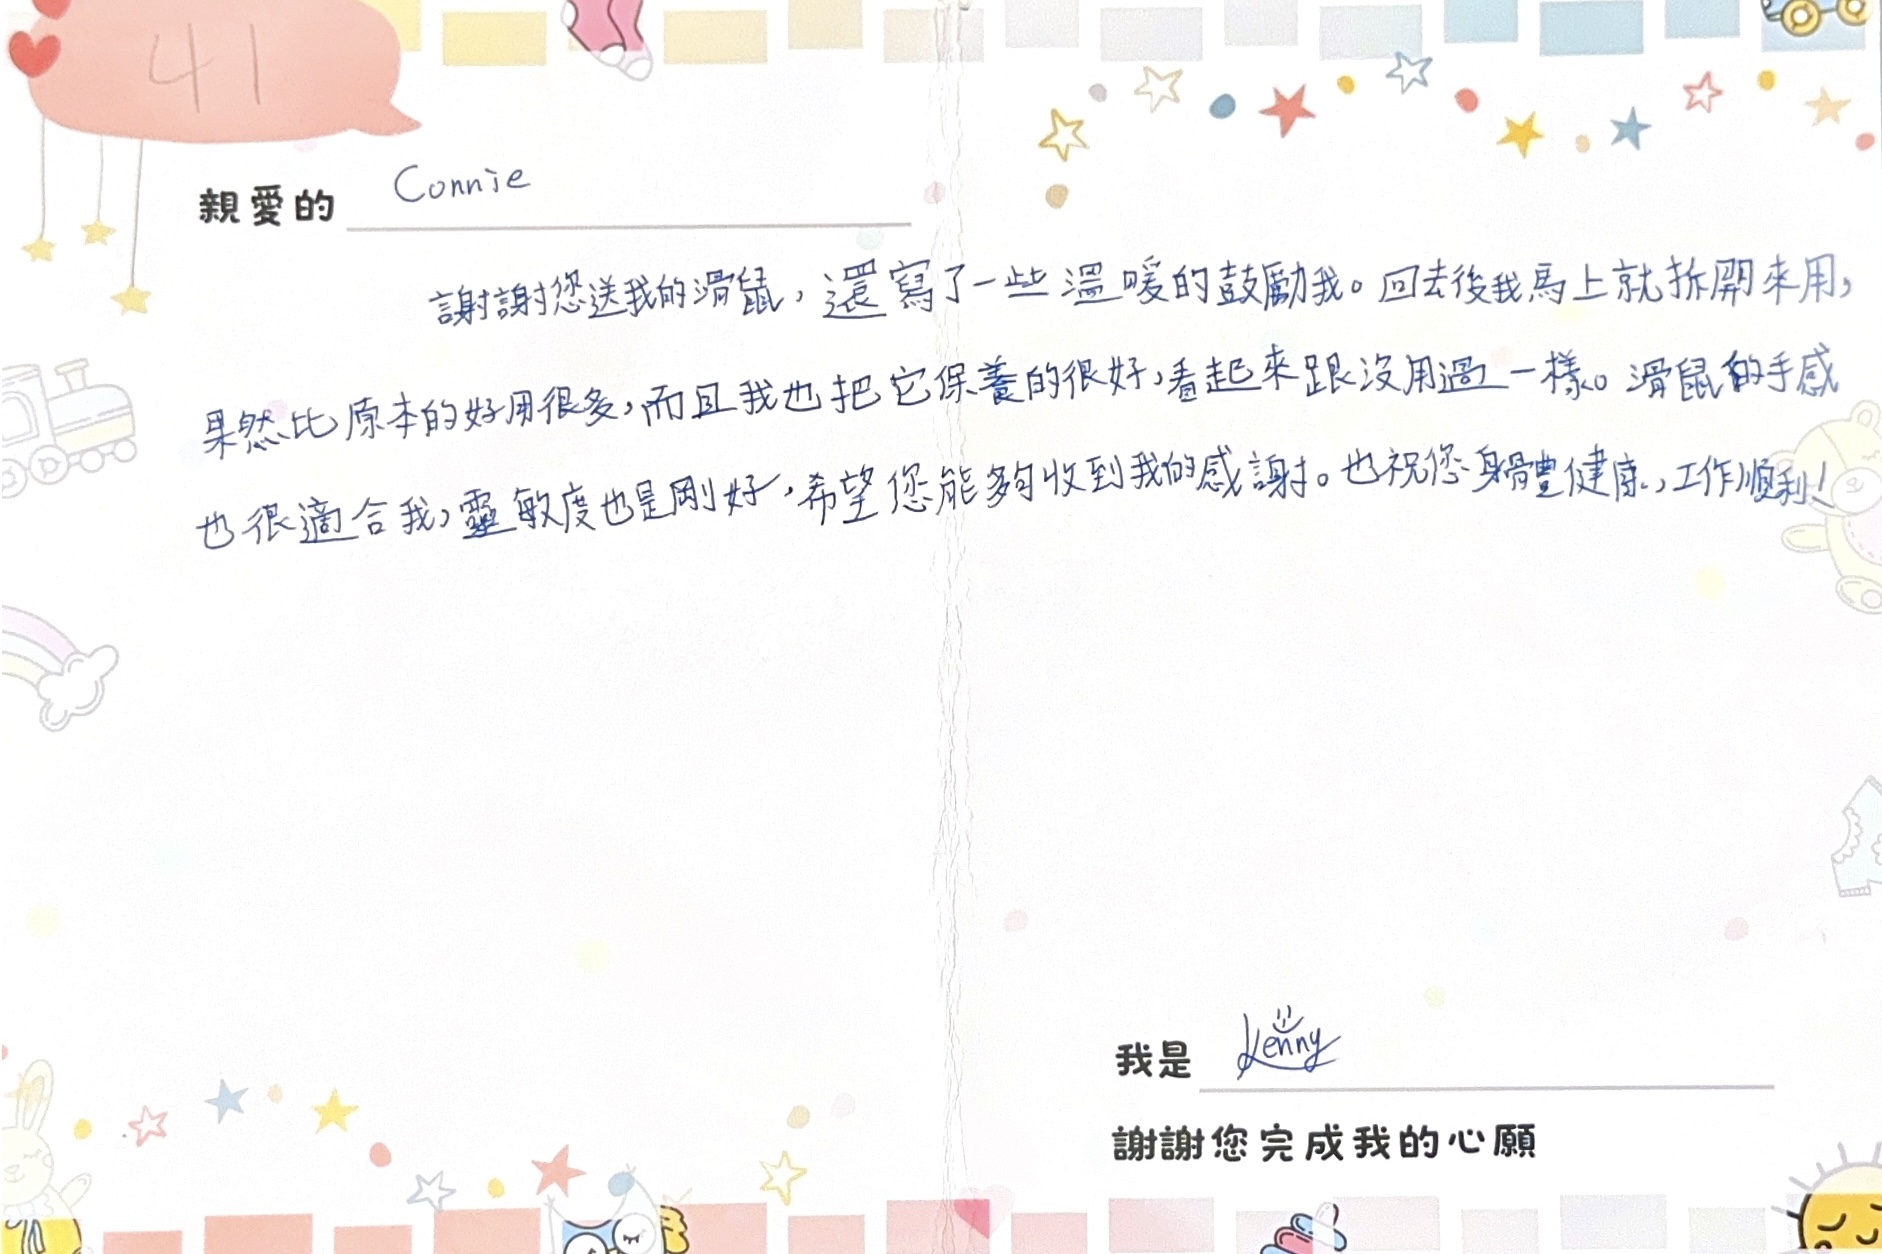 41
親愛的 Connie
謝謝您送我的滑鼠，還寫了一些溫暖的鼓勵我。回去後我馬上就拆開來用，
果然比原本的好用很多，而且我也把它保養的很好，看起來跟沒用過一樣。滑鼠的手感
也很適合我，靈敏度也是剛好，希望您能夠收到我的感謝。也祝您身體健康，工作順利！
我是 Kenny
謝謝您完成我的心願